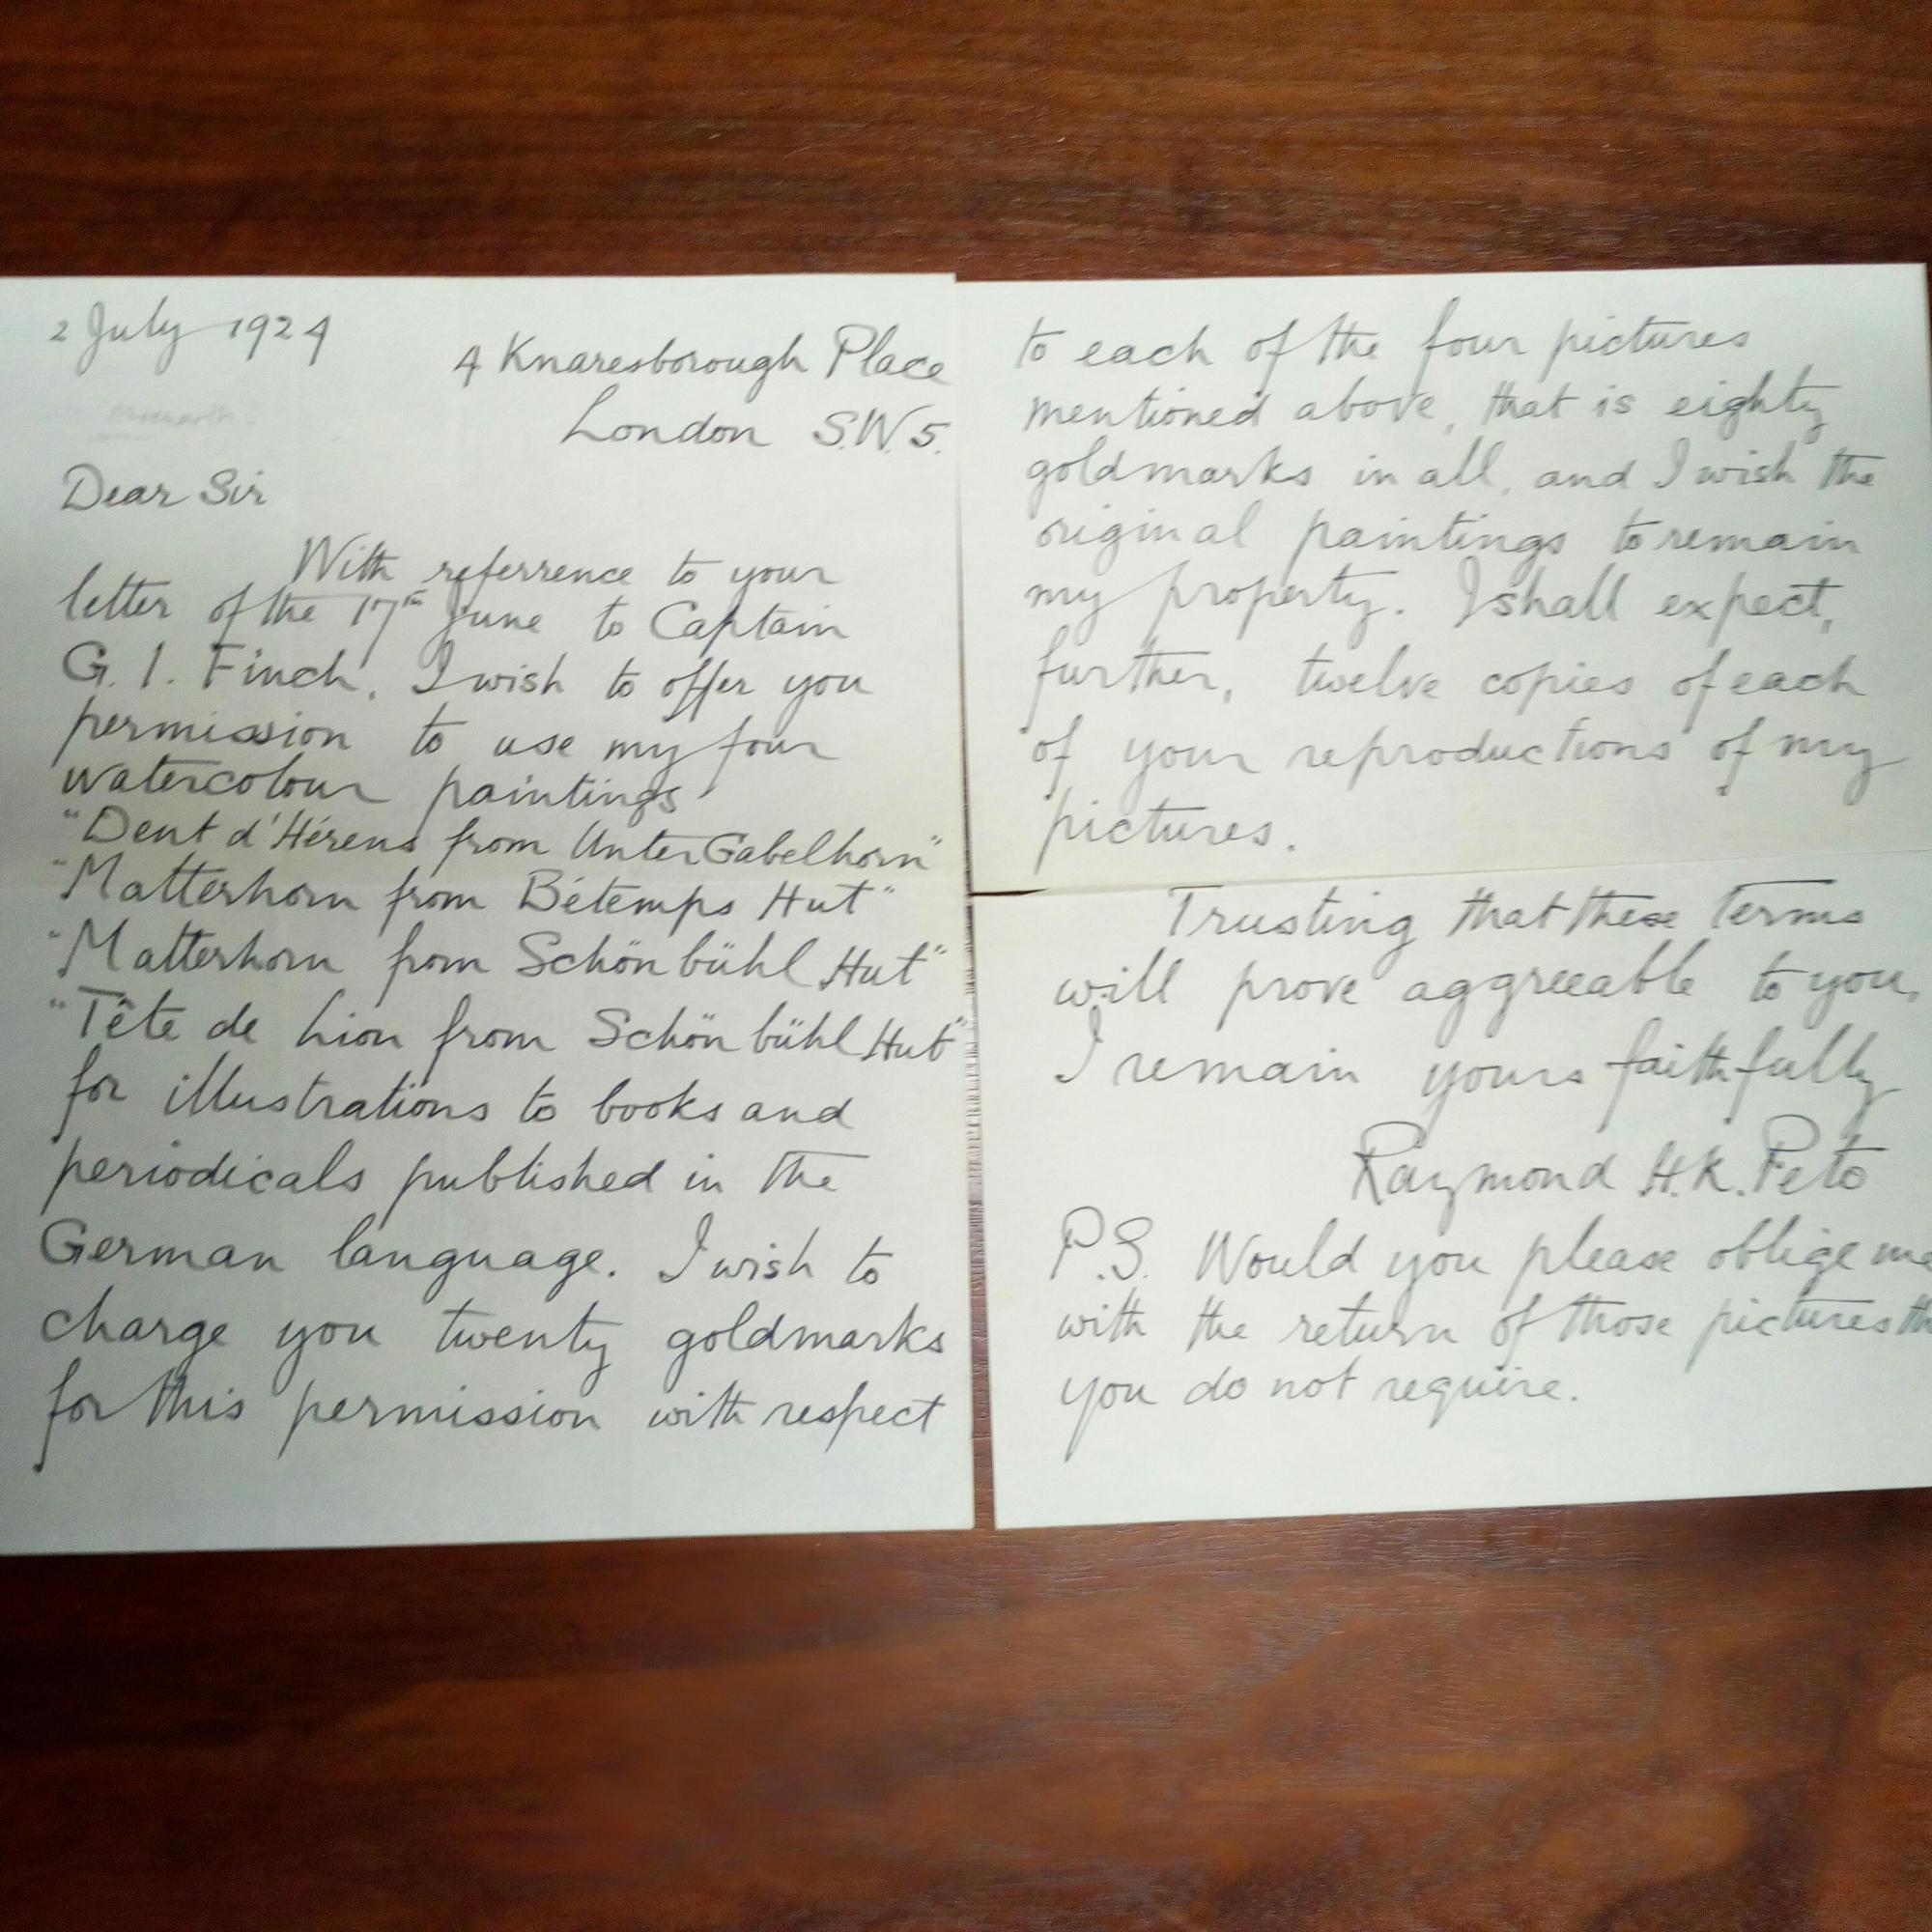 2 July 1924
4 Knaresborough Place
London S.W.5.
Dear Sir
With referrence to your
letter of the 17th June to Captain
G. I. Finch, I wish to offer you
permission to use my four
watercolour paintings
"Dent d'Hérens from Unter Gabelhorn"
"Matterhorn from Bétemps Hut"
"Matterhorn from Schönbühl Hut"
"Tête de Lion from Schönbühl Hut"
for illustrations to books and
periodicals published in the
German language. I wish to
charge you twenty goldmarks
for this permission with respect
to each of the four pictures
mentioned above, that is eighty
goldmarks in all, and I wish the
original paintings to remain
my property. I shall expect,
further, twelve copies of each
of your reproductions of my
pictures.
Trusting that these terms
will prove aggreeable to you,
I remain yours faithfully
Raymond H.K. Peto
P.S. Would you please oblige me
with the return of those pictures th
you do not require.